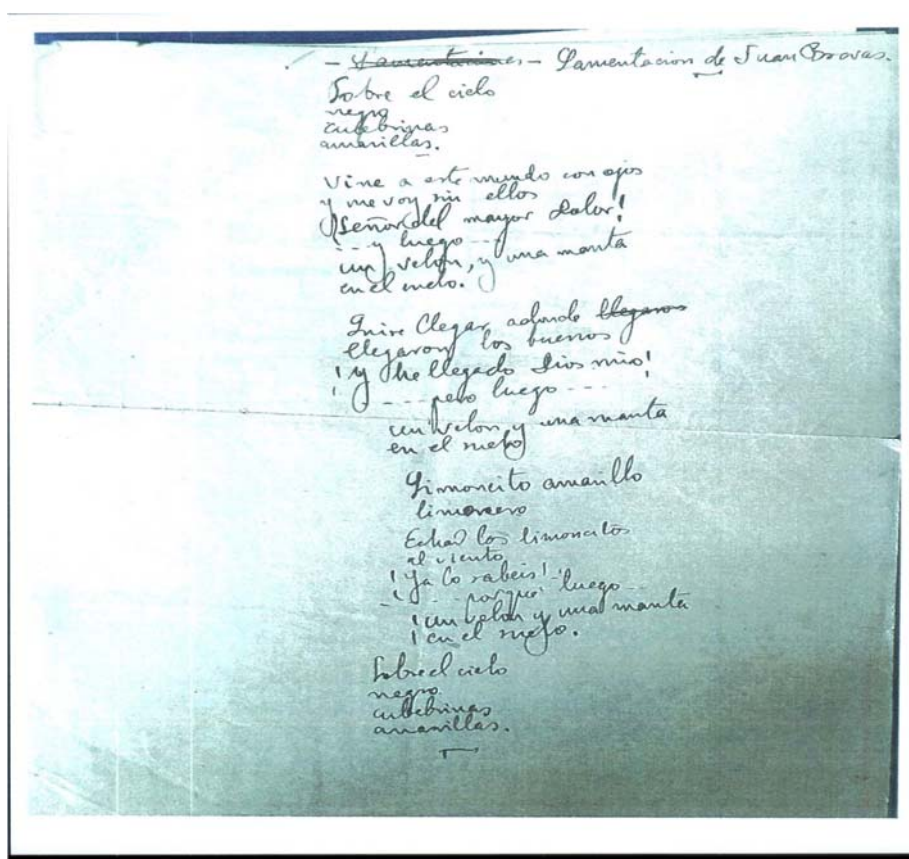 - Lamentaciones - Lamentacion de Juan
Sobre el cielo
negro
culebrinas
amarillas.
Vine a este mundo con ojos
y me voy sin ellos
¡Señor del mayor dolor!
!---y luego---
un velon, y una manta
en el suelo.
Quise llegar adonde llegaron
llegaron los buenos
¡y he llegado Dios mio!
¡ ----pero luego---
un velon y una manta
en el suelo
Limoncito amarillo
limonero
Echad los limoncitos
al viento
¡Ya lo sabeis!--
--- porque luego---
¡un velon y una manta
¡en el suelo.
Sobre el cielo
negro
culebrinas
amarillas.